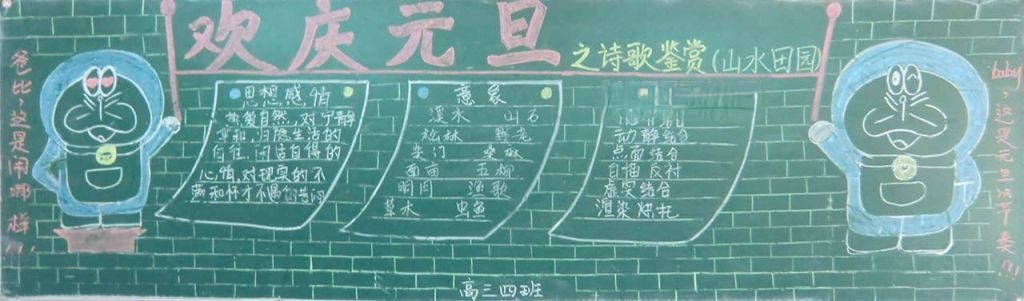 爸比，这是闹哪样！！
欢庆元旦
之诗歌鉴赏(山水田园)
思想感情
热爱自然，对宁静
平和，归隐生活的
向往，闲适自得的
心情，对现实的不
满和怀才不遇的苦闷
意象
溪水 山石
松林 野老
柴门 桑麻
南亩 五柳
明月 渔歌
草木 虫鱼
动静结合
点面结合
白描 反衬
虚实结合
渲染 烘托
baby，这是元旦的节奏!!!
高三四班